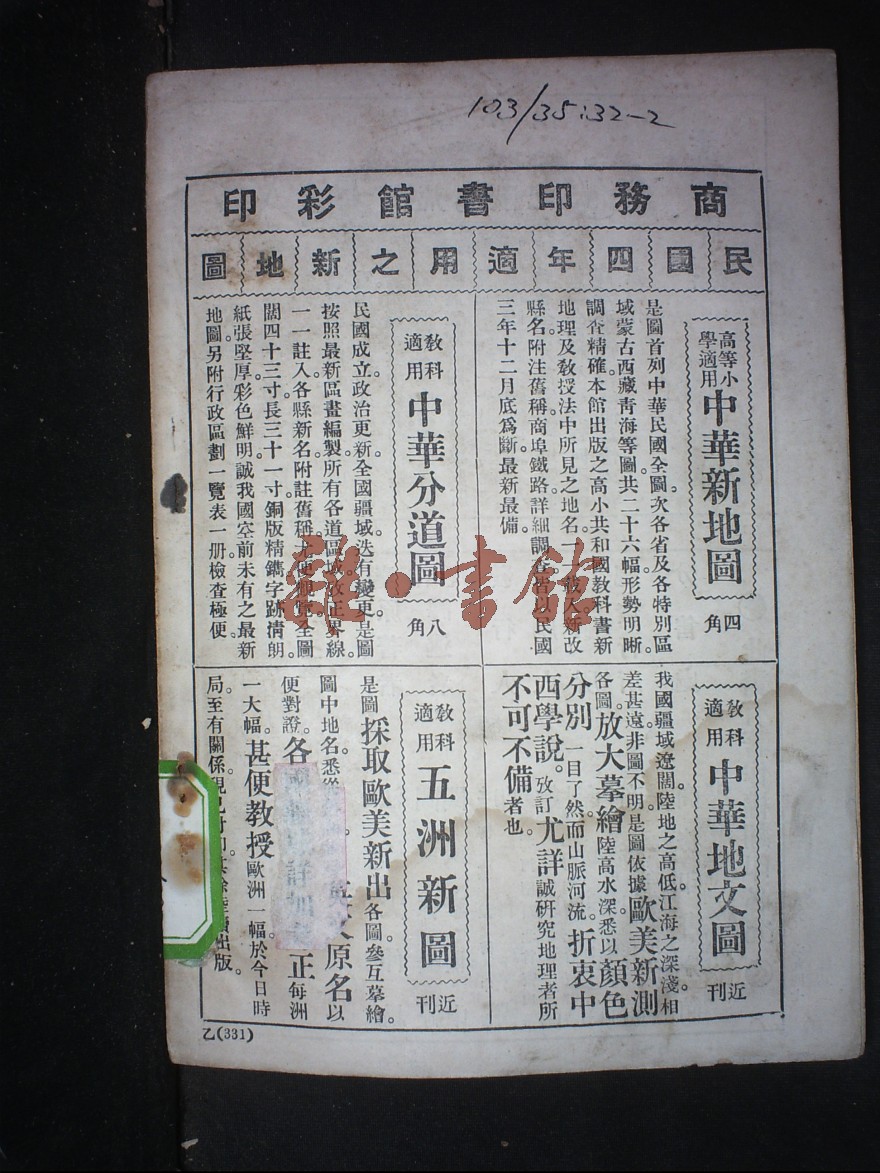 103/35:32-2
商務印書館彩印
民國四年適用之新地圖
高等小學適用
中華新地圖
四角
是圖首列中華民國全圖。次各省及各特別區
域蒙古西藏青海等圖。共二十六幅形勢明晰。
調查精確本館出版之高小共和國教科書新
地理及教授法中所見之地名。一一載入。新改
縣名。附注舊稱。商埠鐵路。詳細調查皆以民國
三年十二月底爲斷。最新最備。
教科適用
中華分道圖
八角
民國成立。政治更新。全國疆域。迭有變更。是圖
按照最新區畫編製。所有各道區域。改正界線。
一一註入。各縣新名。附註舊稱。尤便觀覽。全圖
闊四十三寸。長三十一寸。銅版精鐫。字跡清朗。
紙張堅厚。彩色鮮明。誠我國空前未有之最新
地圖。另附行政區劃一覽表一册。檢查極便。
教科適用
中華地文圖
近刊
我國疆域遼闊。陸地之高低。江海之深淺。相
差甚遠。非圖不明。是圖依據歐美新測
各圖。放大摹繪。陸高水深。悉以顏色
分別。一目了然。而山脈河流。折衷中
西學說。攷訂尤詳。誠研究地理者所
不可不備者也。
教科適用
五洲新圖
近刊
是圖採取歐美新出各圖。參互摹繪。
圖中地名。悉從 原名以
便對證。各 正每洲
一大幅。甚便教授。歐洲一幅。於今日時
局。至有關係。現已 出版。
乙(331)
雜·書館